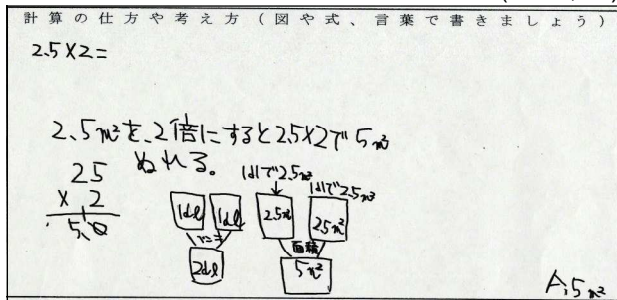 計算の仕方や考え方(図や式、言葉で書きましょう)
2.5×2=
2.5m²を、2倍にすると2.5×2で5m²
ぬれる。
25
× 2
5.0
1dl 1dl
2dl
1dlで2.5m²
2.5m²
1dlで2.5m²
2.5m²
面積
5m²
A.5m²